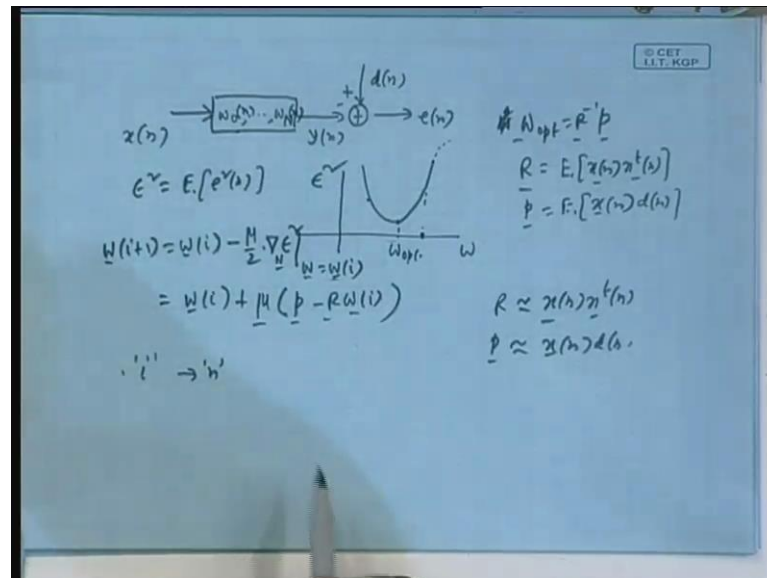 © CET
I.I.T. KGP
d(n)
+
-
x(n)
y(n)
e(n)
ε² = E.[e²(n)]
ε²
W_opt.
W
W(i+1) = W(i) - μ/2 . ∇_W ε² |_{W = W(i)}
= W(i) + μ (p - R W(i))
'i' → 'n'
W_opt = R⁻¹ p
R = E.[x(n) xᵗ(n)]
p = E.[x(n) d(n)]
R ≈ x(n) xᵗ(n)
p ≈ x(n) d(n.